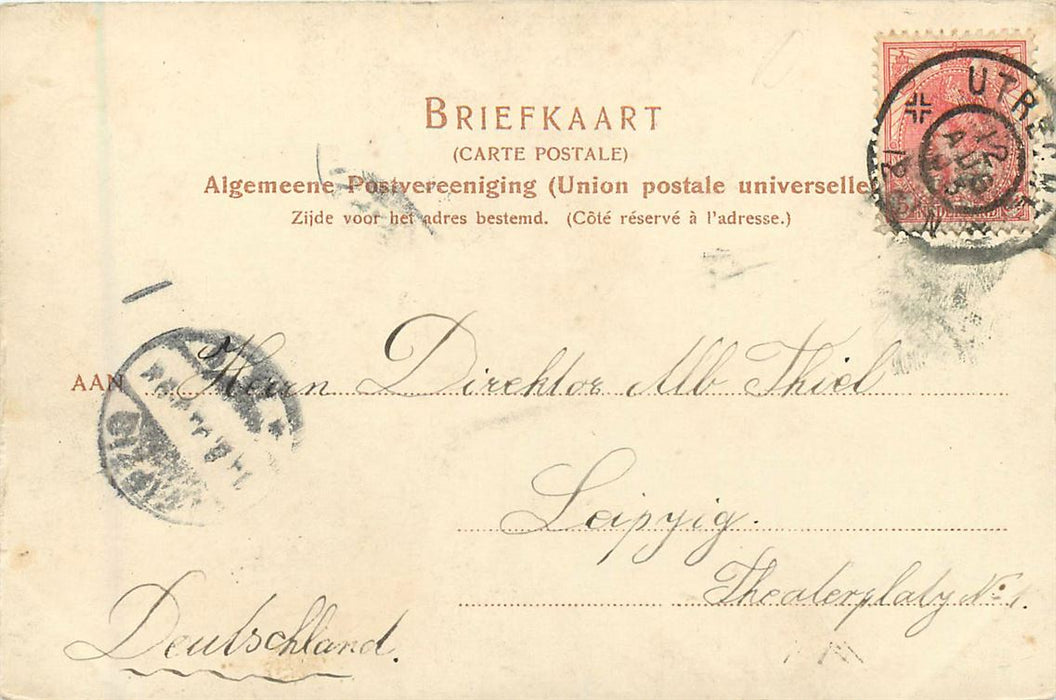 BRIEFKAART
(CARTE POSTALE)
Algemeene Postvereeniging (Union postale universelle
Zijde voor het adres bestemd. (Côté réservé à l'adresse.)
UTRECHT
12
AUG
AAN Herrn Direktor Alb Thiel
LEIPZIG
Leipzig.
Theaterplatz No 1.
Deutschland.